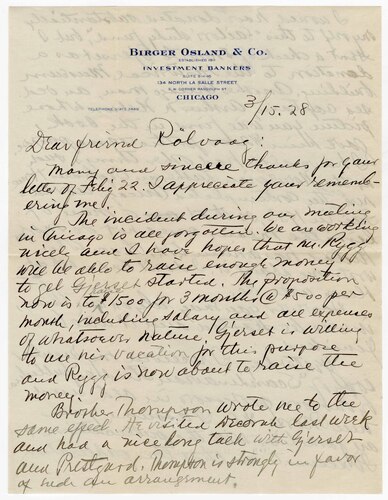 BIRGER OSLAND & CO.
ESTABLISHED
INVESTMENT BANKERS
134 NORTH LA SALLE STREET
S.W. CORNER RANDOLPH ST.
CHICAGO
TELEPHONE
3/15.28
Dear friend Rölvaag:
Many and sincere thanks for your
letter of Feb 22. I appreciate your remem-
bering me.
The incident during our meeting
in Chicago is all forgotten. We are working
nicely and I have hopes that Mr. Rygg
will be able to raise enough money
to get Gjerset started. My proposition
now is to $1500 for 3 months @ $500 per
month, including salary and all expenses
of whatsoever nature. Gjerset is willing
to use his vacation for this purpose
and Rygg is now about to raise the
money.
Brother Thompson wrote me to the
same effect. He visited Decorah last week
and had a nice long talk with Gjerset
and Prestgard. Thompson is strongly in favor
of such an arrangement.